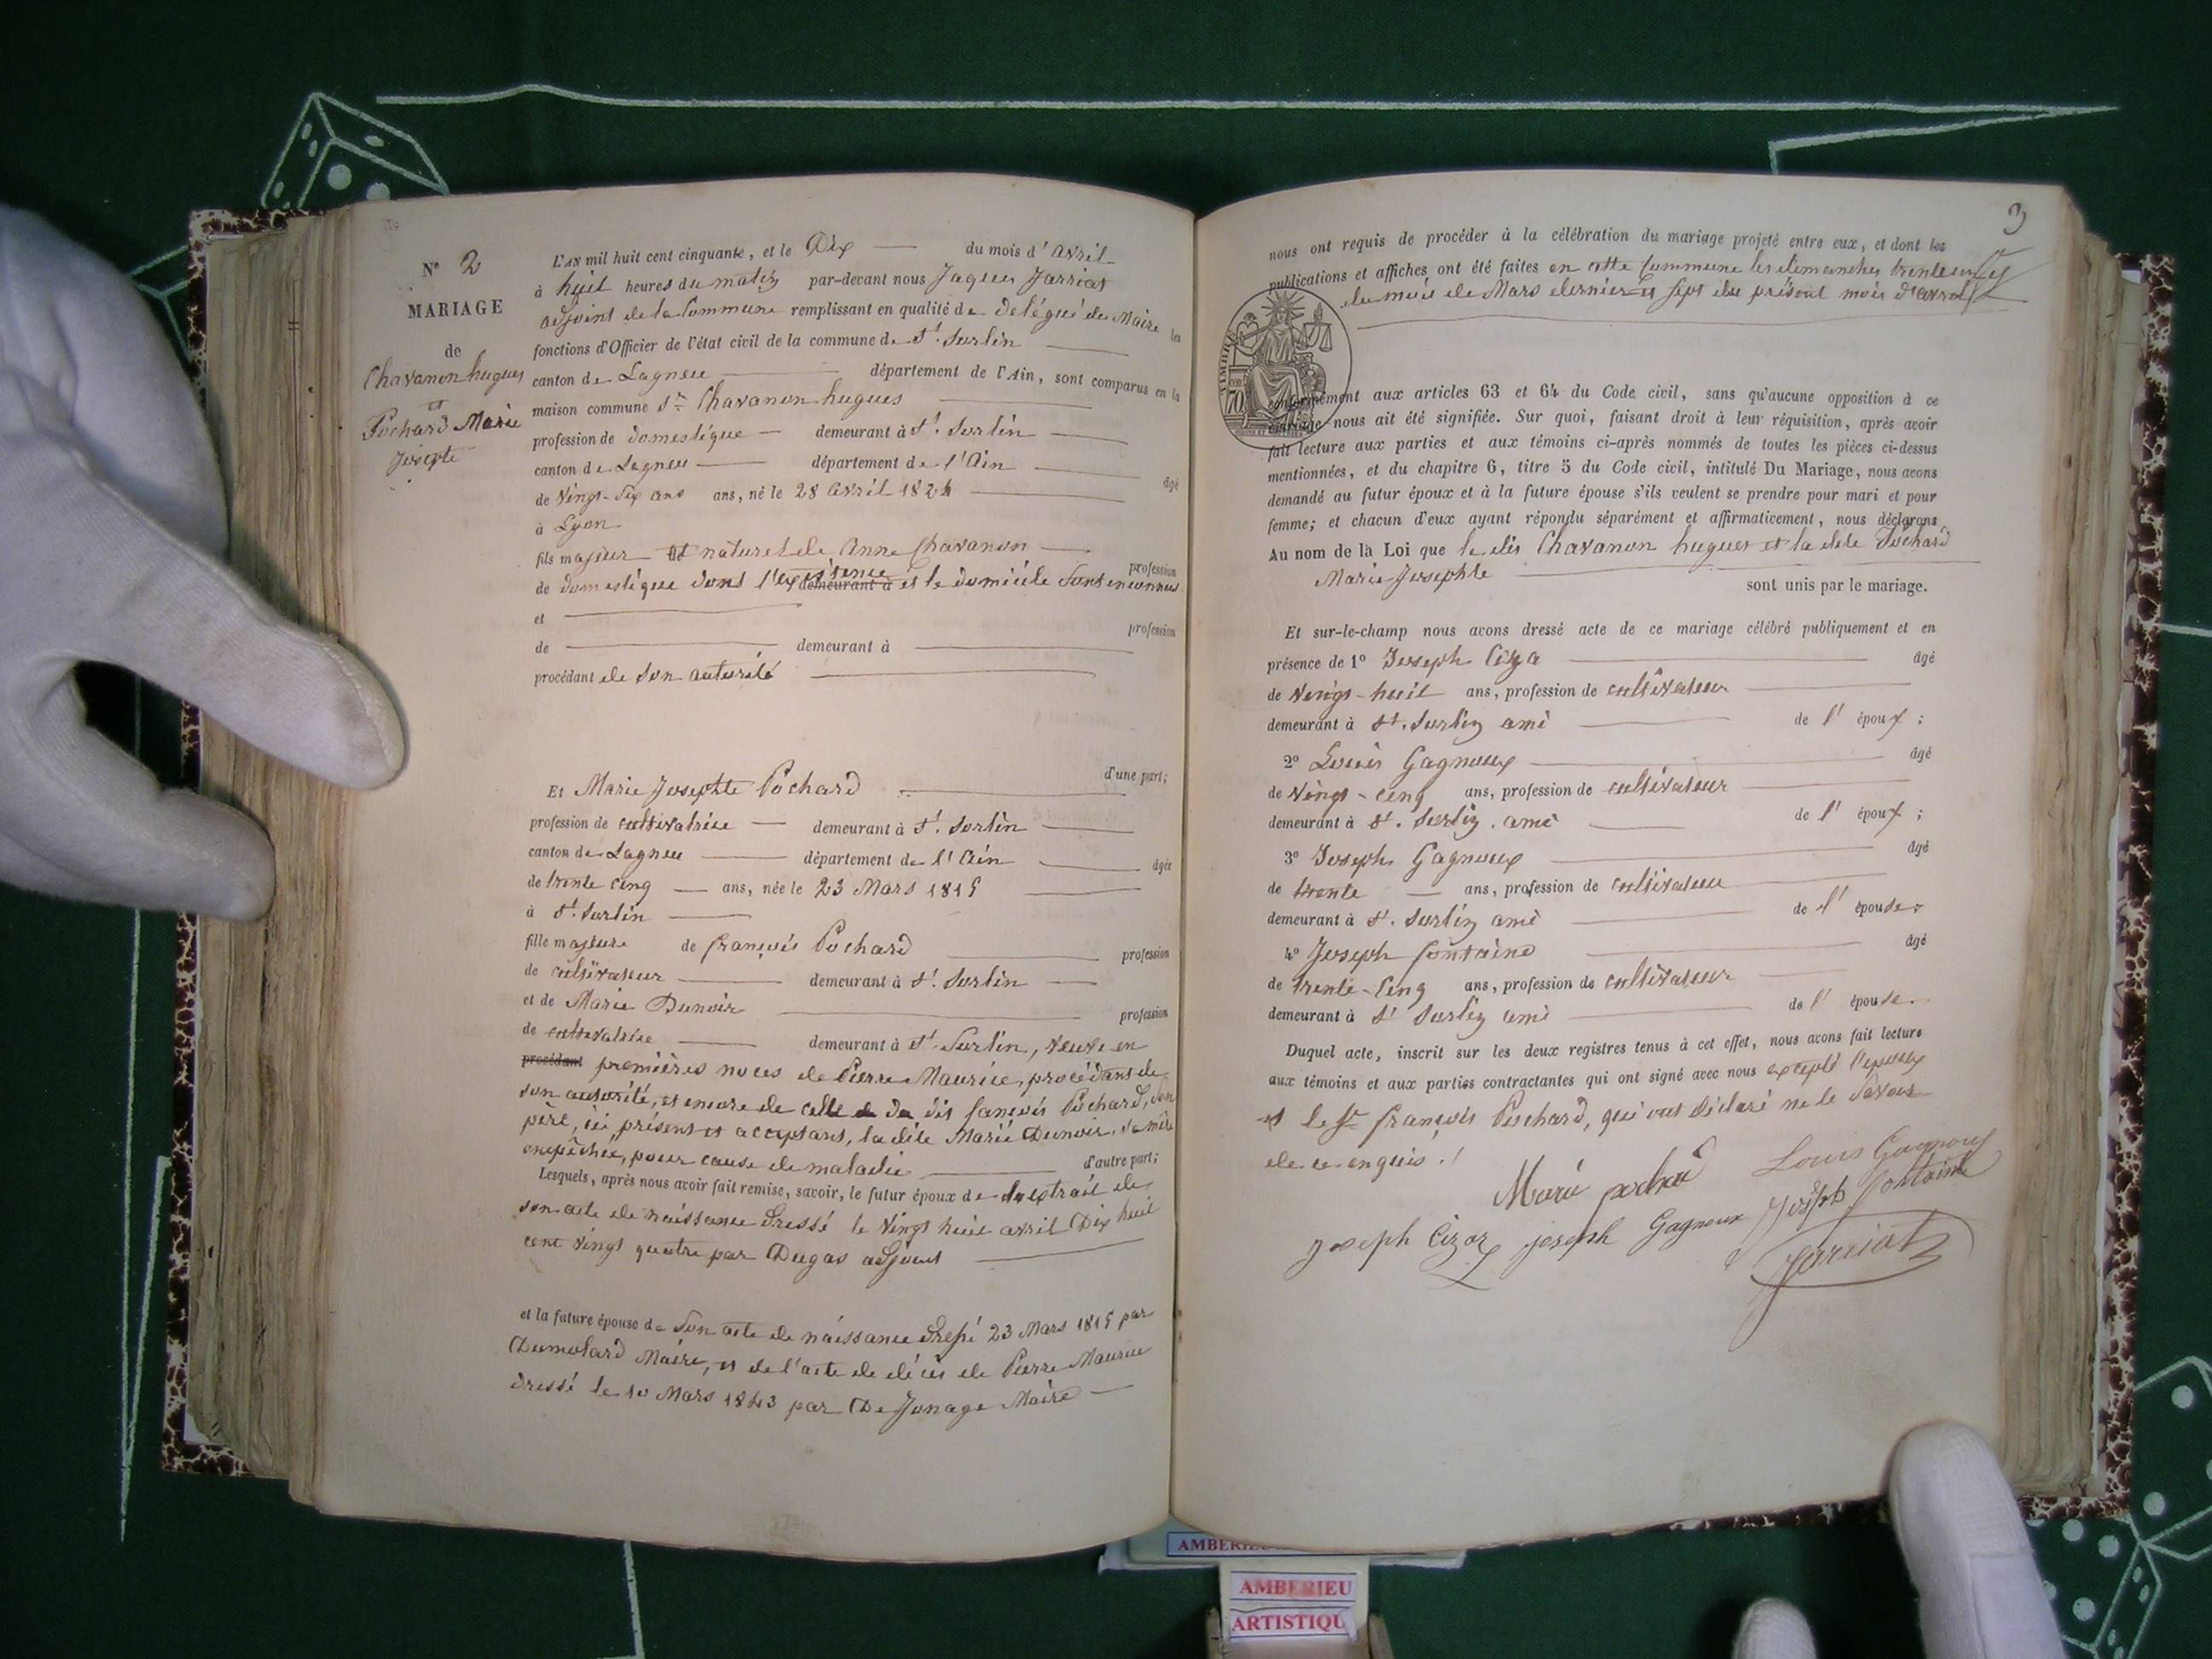 N° 2
MARIAGE
de
Chavanon hugues
et
Pochard Marie
Josephte
L'AN mil huit cent cinquante, et le Dix du mois d'Avril
à huit heures du matin par-devant nous Jaques Jarriat
adjoint de la Commune remplissant en qualité de délégué du Maire les
fonctions d'Officier de l'état civil de la commune de St. Sorlin
canton de Lagneu département de l'Ain, sont comparus en la
maison commune Sr. Chavanon hugues
profession de domestique demeurant à St. Sorlin
canton de Lagneu département de l'Ain
âgé
de vingt-six ans ans, né le 28 Avril 1824
à Lyon
fils majeur et naturel de Anne Chavanon
profession
de domestique dont l'existence demeurant à et le domicile sont inconnus
et
profession
de demeurant à
procédant de son autorité
d'une part;
Et Marie Josephte Pochard
profession de cultivatrice demeurant à St. Sorlin
canton de Lagneu département de l'Ain
âgée
de trente cinq ans, née le 23 Mars 1815
à St. Sorlin
fille majeure de françois Pochard
profession
de cultivateur demeurant à St. Sorlin
et de Marie Dunoir
profession
de cultivatrice demeurant à St. Sorlin, veuve en
procédant premières noces de Pierre Maurice, procédant de
son autorité, et encore de celle du dit françois Pochard, son
père, ici présent et acceptant, la dite Marie Dunoir, sa mère
empêchée, pour cause de maladie d'autre part;
Lesquels, après nous avoir fait remise, savoir, le futur époux de l'extrait de
son acte de naissance dressé le vingt huit avril Dix huit
cent vingt quatre par Dugas adjoint
et la future épouse de son acte de naissance dressé 23 Mars 1815 par
Dumolard Maire, et de l'acte de décès de Pierre Maurice
dressé le 10 Mars 1843 par De Jonage Maire
3
nous ont requis de procéder à la célébration du mariage projeté entre eux, et dont les
publications et affiches ont été faites en cette Commune les dimanches trente un
du mois de Mars dernier et sept du présent mois d'avril
TIMBRE
70
conformément aux articles 63 et 64 du Code civil, sans qu'aucune opposition à ce
mariage nous ait été signifiée. Sur quoi, faisant droit à leur réquisition, après avoir
fait lecture aux parties et aux témoins ci-après nommés de toutes les pièces ci-dessus
mentionnées, et du chapitre 6, titre 5 du Code civil, intitulé Du Mariage, nous avons
demandé au futur époux et à la future épouse s'ils veulent se prendre pour mari et pour
femme; et chacun d'eux ayant répondu séparément et affirmativement, nous déclarons
Au nom de la Loi que le dit Chavanon hugues et la dite Pochard
Marie Josephte
sont unis par le mariage.
Et sur-le-champ nous avons dressé acte de ce mariage célébré publiquement et en
présence de 1° Joseph Ciza âgé
de vingt-huit ans, profession de cultivateur
demeurant à St. Sorlin ami de l'époux;
2° Louis Gagnoux âgé
de vingt-cinq ans, profession de cultivateur
demeurant à St. Sorlin. ami de l'époux;
3° Joseph Gagnoux âgé
de trente ans, profession de cultivateur
demeurant à St. Sorlin ami de l'épouse.
4° Joseph fontaine âgé
de trente-cinq ans, profession de cultivateur
demeurant à St Sorlin ami de l'épouse.
Duquel acte, inscrit sur les deux registres tenus à cet effet, nous avons fait lecture
aux témoins et aux parties contractantes qui ont signé avec nous excepté l'époux
et le Sr. françois Pochard, qui ont déclaré ne le savoir
de ce enquis.
Louis Gagnoux
Joseph fontaine
Joseph Cizaz joseph Gagnoux
Jarriat
AMBERIEU
AMBERIEU
ARTISTIQU